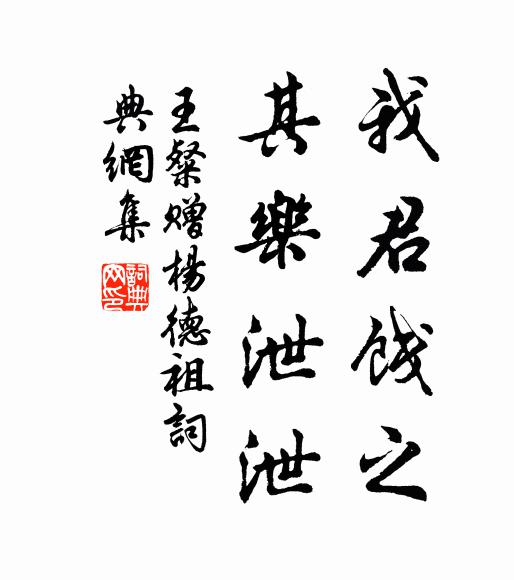 我君餞之
其樂泄泄
王粲贈楊德祖詞
典網集
詞典网印